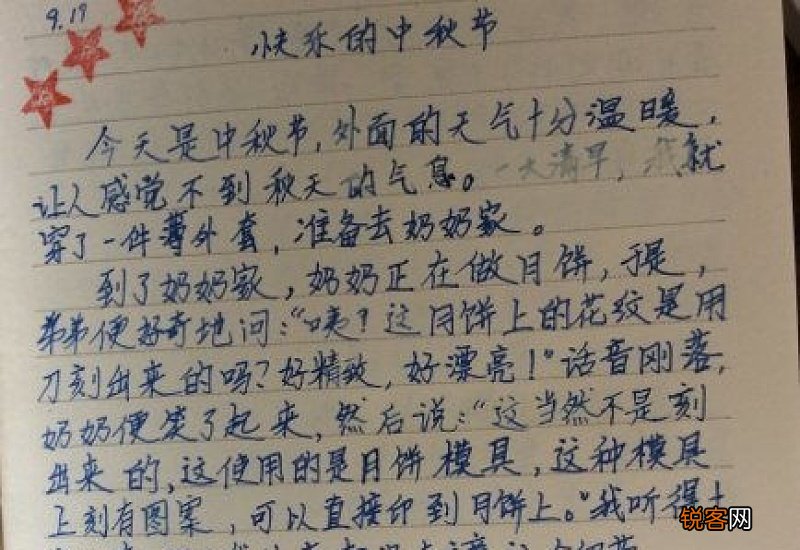 9.19
快乐的中秋节
今天是中秋节,外面的天气十分温暖,
让人感觉不到秋天的气息。一大清早,我就
穿了一件薄外套,准备去奶奶家。
到了奶奶家,奶奶正在做月饼,于是,
弟弟便好奇地问:“咦?这月饼上的花纹是用
刀刻出来的吗?好精致,好漂亮!”话音刚落,
奶奶便笑了起来,然后说:“这当然不是刻
出来的,这使用的是月饼模具,这种模具
上刻有图案,可以直接印到月饼上。”我听得
锐客网